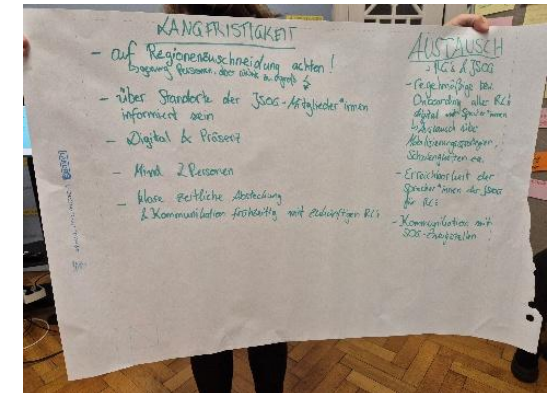 LANGFRISTIGKEIT
- auf Regionenzuschneidung achten!
- über Standorte der JSOG-Mitglieder*innen
informiert sein
- Digital & Präsenz
- Mind 2 Personen
- klare zeitliche Absteckung
& Kommunikation frühzeitig mit zukünftigen RCs
AUSTAUSCH
RCs & JSOG
- regelmäßige
Onboarding aller RCs
digital mit Sprecher*innen
Austausch über
Mobilisierungsstrategien,
Schwierigkeiten
- Erreichbarkeit der
Sprecher*innen der JSOG
für RCs
- Kommunikation mit
SOG-Zweigstellen